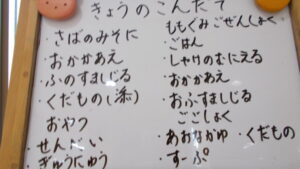 きょうのこんだて
・さばのみそに
・おかかあえ
・ふのすましじる
・くだもの(添)
おやつ
・せんべい
・ぎゅうにゅう
ももぐみごぜんしょく
・ごはん
・しゃけのむにえる
・おかかあえ
・おふすましじる
ごごしょく
・あおながゆ・くだもの
・すーぷ